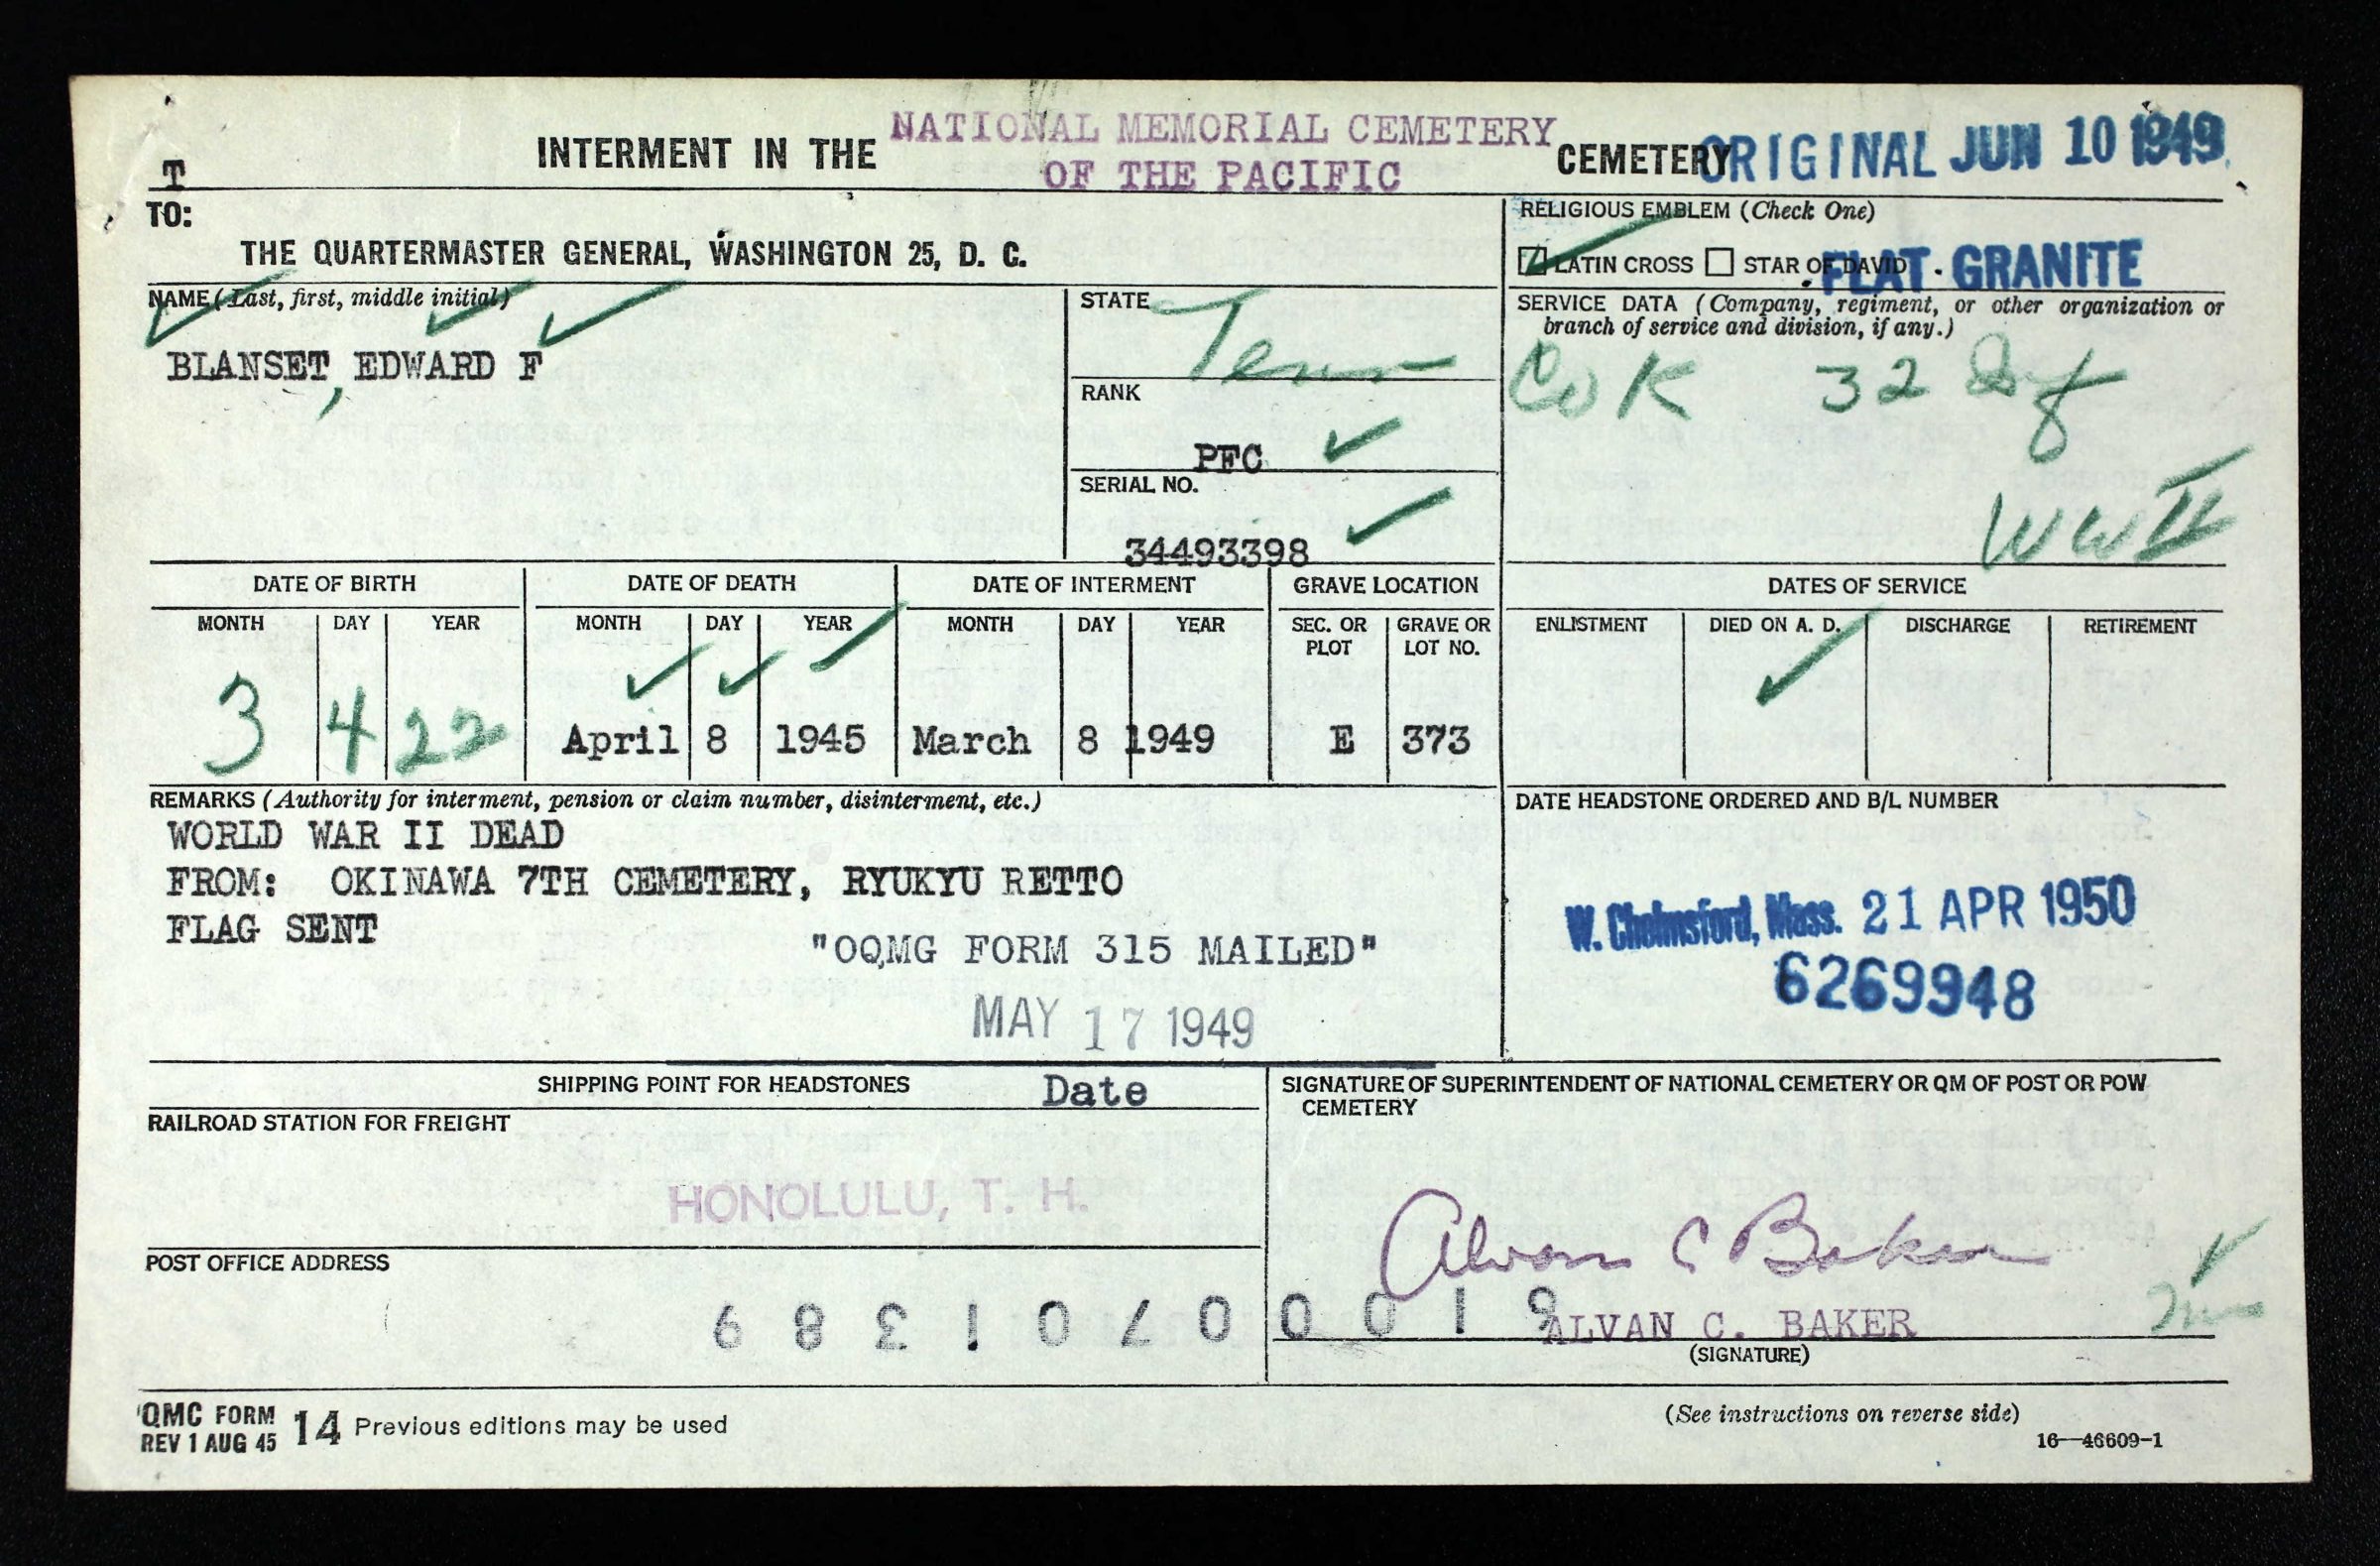 T
INTERMENT IN THE NATIONAL MEMORIAL CEMETERY OF THE PACIFIC CEMETERY
ORIGINAL JUN 10 1949
TO:
THE QUARTERMASTER GENERAL, WASHINGTON 25, D. C.
RELIGIOUS EMBLEM (Check One)
LATIN CROSS STAR OF DAVID
FLAT GRANITE
NAME (Last, first, middle initial)
BLANSET, EDWARD F
STATE
Tenn
RANK
PFC
SERIAL NO.
34493398
SERVICE DATA (Company, regiment, or other organization or
branch of service and division, if any.)
Co K 32 Inf
WW II
DATE OF BIRTH
MONTH DAY YEAR
3 4 22
DATE OF DEATH
MONTH DAY YEAR
April 8 1945
DATE OF INTERMENT
MONTH DAY YEAR
March 8 1949
GRAVE LOCATION
SEC. OR PLOT GRAVE OR LOT NO.
E 373
DATES OF SERVICE
ENLISTMENT DIED ON A. D. DISCHARGE RETIREMENT
REMARKS (Authority for interment, pension or claim number, disinterment, etc.)
WORLD WAR II DEAD
FROM: OKINAWA 7TH CEMETERY, RYUKYU RETTO
FLAG SENT
"OQMG FORM 315 MAILED"
MAY 17 1949
Date
DATE HEADSTONE ORDERED AND B/L NUMBER
W. Chelmsford, Mass. 21 APR 1950
6269948
SHIPPING POINT FOR HEADSTONES
RAILROAD STATION FOR FREIGHT
HONOLULU, T. H.
POST OFFICE ADDRESS
SIGNATURE OF SUPERINTENDENT OF NATIONAL CEMETERY OR QM OF POST OR POW
CEMETERY
Alvan C Baker
ALVAN C. BAKER
(SIGNATURE)
QMC FORM
REV 1 AUG 45 14 Previous editions may be used
(See instructions on reverse side)
16—46609-1